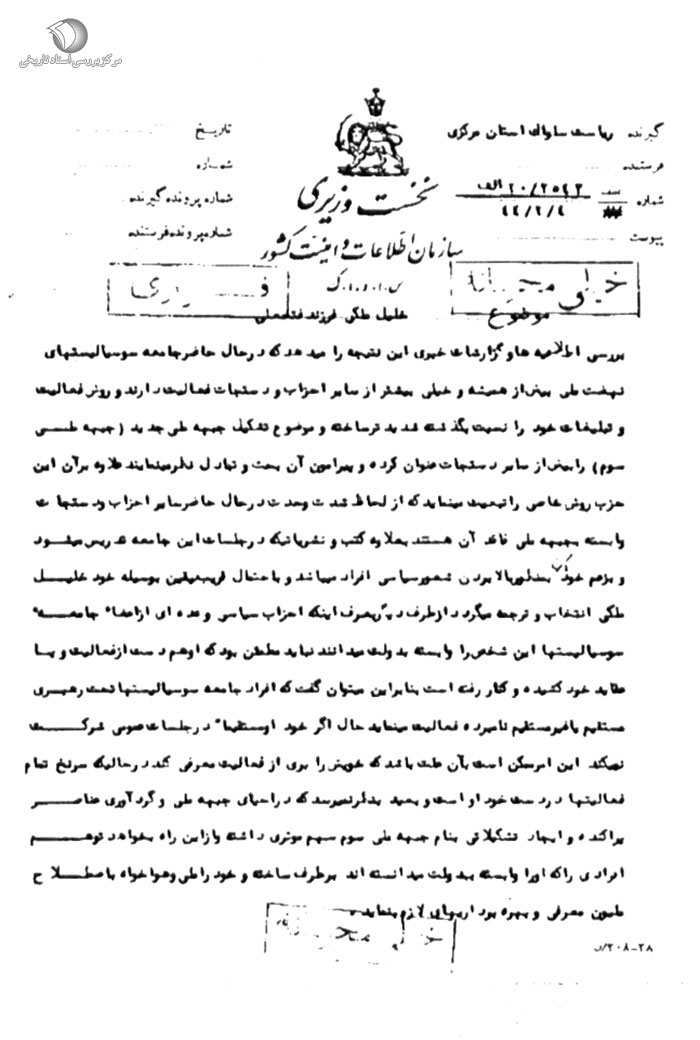 مرکز بررسی اسناد تاریخی
گیرنده ریاست ساواک استان مرکزی
تاریخ
فرستنده
شماره
شماره ۲۰/۲۵۴۳ الف
۴۴/۲/۴
شماره پرونده گیرنده
پیوست
شماره پرونده فرستنده
نخست وزیری
سازمان اطلاعات و امنیت کشور
س.ا.و.ا.ک
خیلی محرمانه
موضوع خلیل ملکی فرزند فتحعلی
بررسی اطلاعیه ها و گزارشات خبری این نتیجه را میدهد که در حال حاضر جامعه سوسیالیستهای
نهضت ملی بیش از همیشه و خیلی بیشتر از سایر احزاب و دستجات فعالیت دارند و روش فعالیت
و تبلیغات خود را نسبت بگذشته شدید تر ساخته و موضوع تشکیل جبهه ملی جدید (جبهه ملی
سوم) را بیش از سایر دستجات عنوان کرده و پیرامون آن بحث و تبادل نظر مینمایند علاوه بر آن این
حزب روش خاصی را تبعیت مینماید که از لحاظ شدت وحدت در حال حاضر سایر احزاب و دستجات
وابسته بجبهه ملی فاقد آن هستند بعلاوه کتب و نشریاتیکه در جلسات این جامعه تدریس میشود
و بزعم خودشان بمنظور بالا بردن شعور سیاسی افراد میباشد و باحتمال قریب بیقین بوسیله خود خلیل
ملکی انتخاب و ترجمه میگردد از طرف دیگر بصرف اینکه احزاب سیاسی و عده ای از اعضاء جامعه
سوسیالیستها این شخص را وابسته بدولت میدانند نباید مطمئن بود که او هم دست از فعالیت و یا
عقاید خود کشیده و کنار رفته است بنابراین میتوان گفت که افراد جامعه سوسیالیستها تحت رهبری
مستقیم یا غیر مستقیم نامبرده فعالیت مینماید حال اگر خود او مستقیماً در جلسات عمومی شرکت
نمیکند این امر ممکن است بآن علت باشد که خویش را بری از فعالیت معرفی کند در حالیکه سرنخ تمام
فعالیتها در دست خود او است و بعید بنظر نمیرسد که در احیای جبهه ملی و گردآوری عناصر
پراکنده و ایجاد تشکیلاتی بنام جبهه ملی سوم سهم موثری داشته و از این راه بخواهد توهم
افرادی را که او را وابسته بدولت میدانسته اند برطرف ساخته و خود را ملی و هواخواه باصطلاح
ملیون معرفی و بهره برداریهای لازم بنماید.
خیلی محرمانه
۲۰۸-۲۸/د